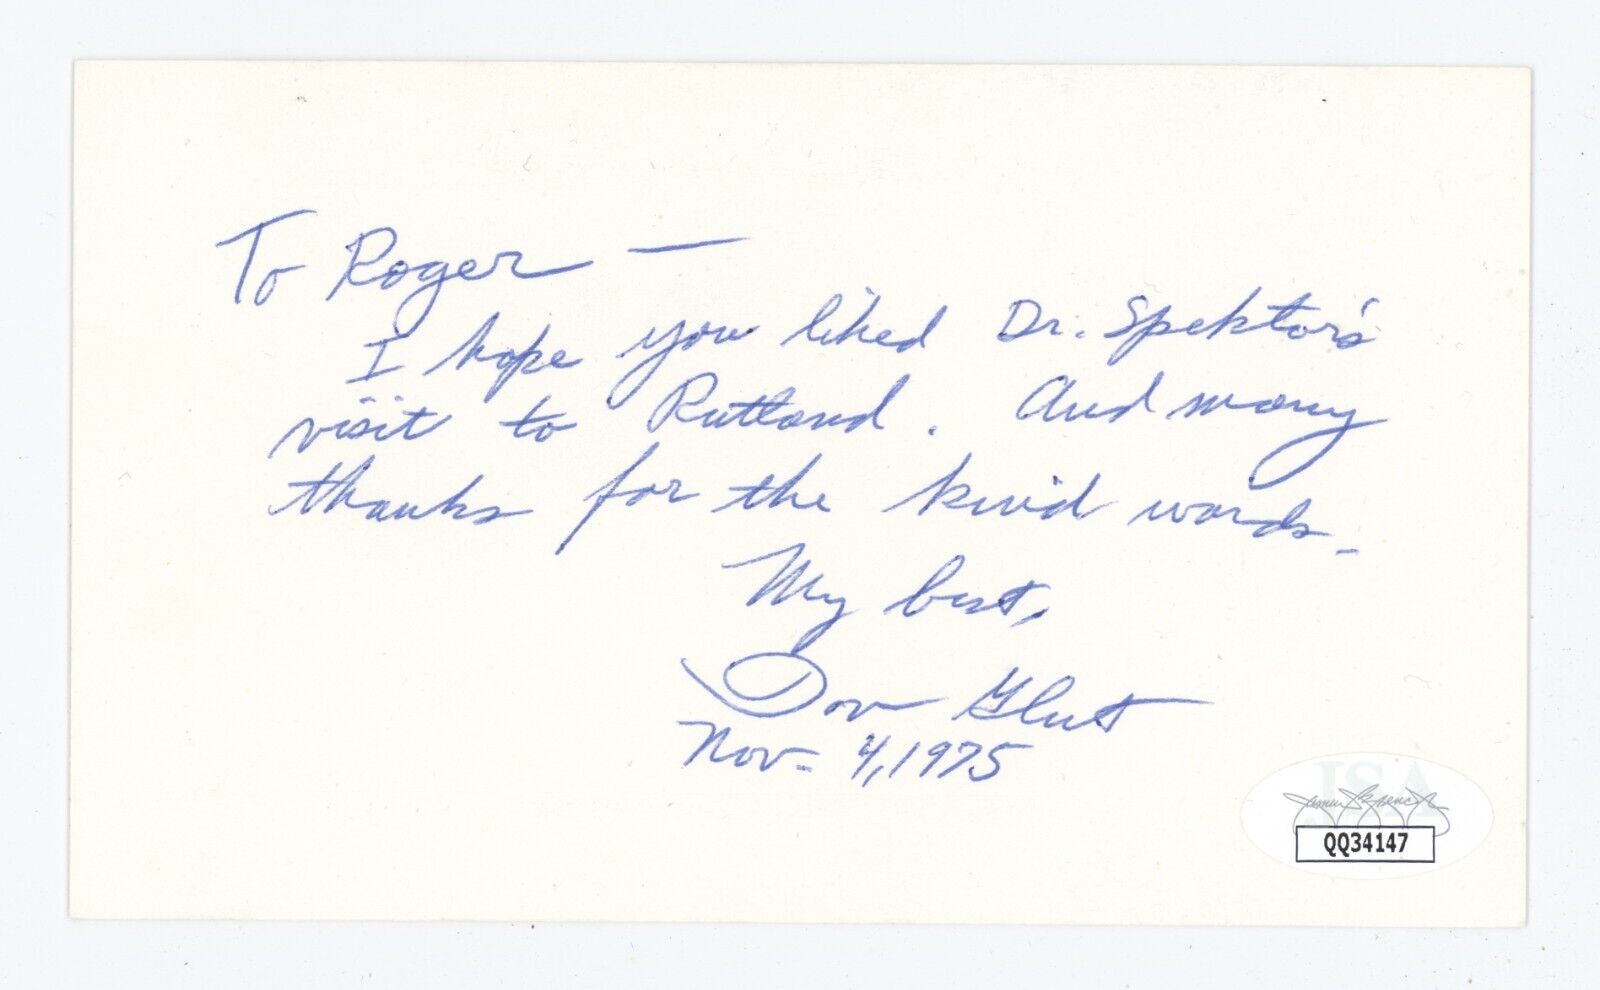 To Roger —
I hope you liked Dr. Spektor's
visit to Rutland. And many
thanks for the kind words.
My best,
Don Glut
Nov. 4, 1975
JSA
QQ34147